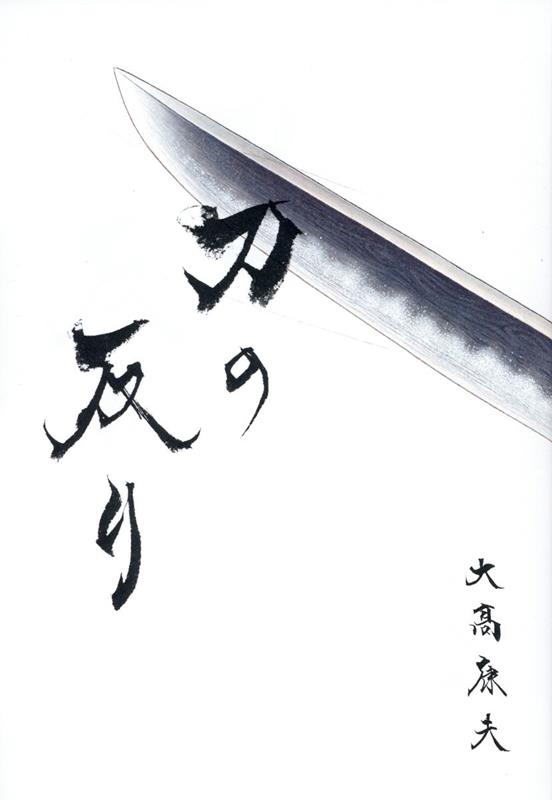 刀の
反り
大髙康夫